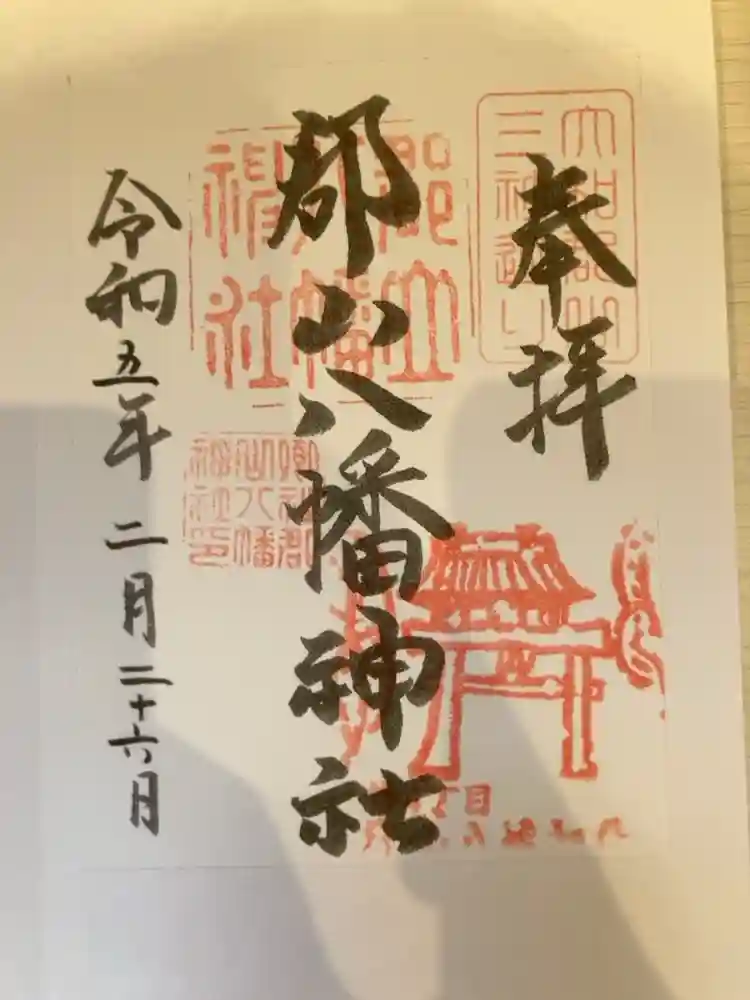 奉拝
大和郡山
三社巡り
郡山八幡神社
郡山
八幡
神社
令和五年二月二十六月